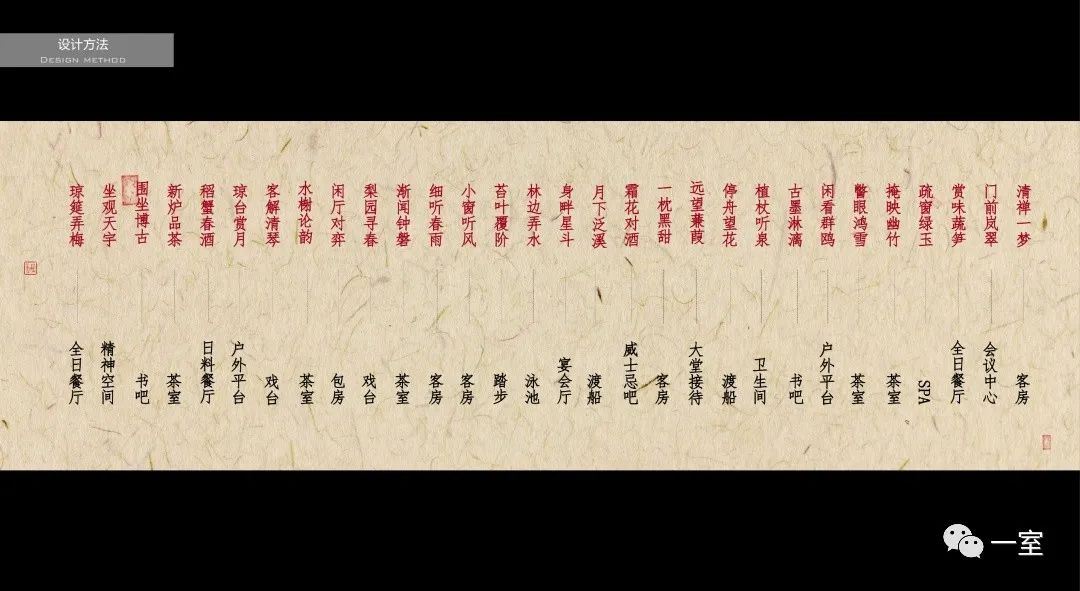 设计方法
DESIGN METHOD
琼筵弄梅
坐观天宇
围坐博古
新炉品茶
稻蟹春酒
琼台赏月
客解清琴
水榭论韵
闲厅对弈
梨园寻春
渐闻钟磬
细听春雨
小窗听风
苔叶覆阶
林边弄水
身畔星斗
月下泛溪
霜花对酒
一枕黑甜
远望蒹葭
停舟望花
植杖听泉
古墨淋漓
闲看群鸥
瞥眼鸿雪
掩映幽竹
疏窗绿玉
赏味蔬笋
门前岚翠
清禅一梦
全日餐厅
精神空间
书吧
茶室
日料餐厅
户外平台
戏台
茶室
包房
戏台
茶室
客房
客房
踏步
泳池
宴会厅
渡船
威士忌吧
客房
大堂接待
渡船
卫生间
书吧
户外平台
茶室
茶室
SPA
全日餐厅
会议中心
客房
一室